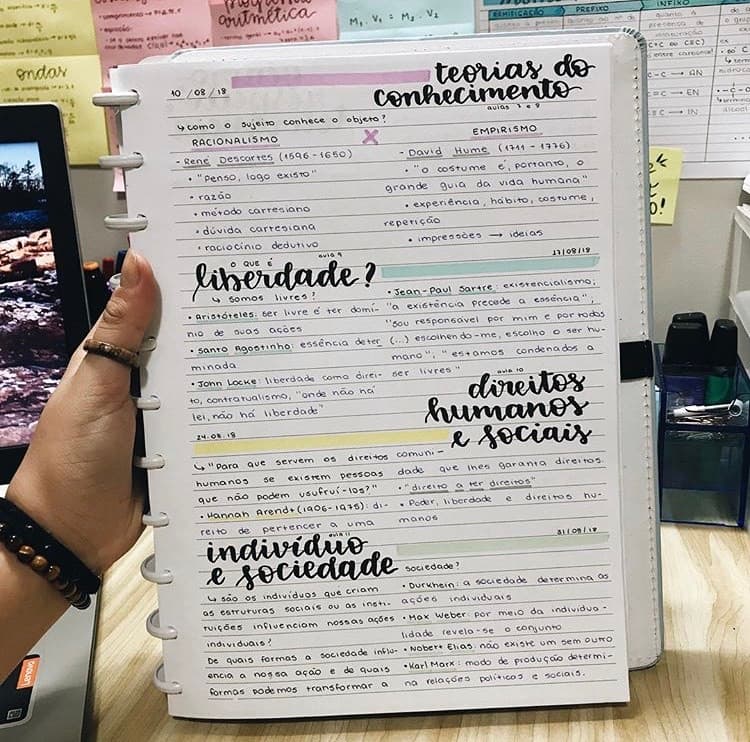 10/08/18
teorias do
conhecimento
aulas 7 e 8
↳ como o sujeito conhece o objeto?
RACIONALISMO
- René Descartes (1596-1650)
• "Penso, logo existo"
• razão
• método cartesiano
• dúvida cartesiana
• raciocínio dedutivo
X
EMPIRISMO
- David Hume (1711-1776)
• "o costume é, portanto, o
grande guia da vida humana"
• experiência, hábito, costume,
repetição
• impressões → ideias
O QUE É
aula 9
liberdade?
17/08/18
↳ somos livres?
• Aristóteles: ser livre é ter domí-
nio de suas ações
• Santo Agostinho: essência deter
minada
• John Locke: liberdade como direi-
to, contratualismo, "onde não há
lei, não há liberdade"
• Jean-Paul Sartre: existencialismo,
"a existência precede a essência",
"sou responsável por mim e por todos
(...) escolhendo-me, escolho o ser hu-
mano", "estamos condenados a
ser livres"
24.08.18
aula 10
direitos
humanos
e sociais
↳ "Para que servem os direitos
humanos se existem pessoas
que não podem usufruí-los?"
• Hannah Arendt (1906-1975): di-
reito de pertencer a uma
comuni-
dade que lhes garanta direitos.
• "direito a ter direitos"
• Poder, liberdade e direitos hu-
manos
aula 11
indivíduo
e sociedade
31/08/18
↳ são os indivíduos que criam
as estruturas sociais ou as insti-
tuições influenciam nossas ações
individuais?
De quais formas a sociedade influ-
encia a nossa ação e de quais
formas podemos transformar a
sociedade?
• Durkhein: a sociedade determina as
ações individuais
• Max Weber: por meio da individua-
lidade revela-se o conjunto
• Nobert Elias: não existe um sem outro
• Karl Marx: modo de produção determi-
na relações políticas e sociais.
ondas
aritmética
M₁.V₁ = M₂.V₂
RAMIFICAÇÃO
PREFIXO
INFIXO
C-C → AN
C=C → EN
C≡C → IN
lenovo